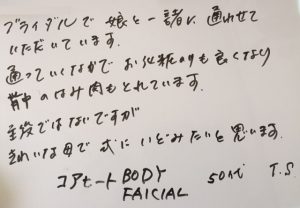 ブライダルで娘と一諸に通わせて
いただいています。
通っていくなかでお化粧のりも良くなり
背中のはみ肉もとれています。
主役ではないですが
きれいな母で式にいどみたいと思います。
コアヒートBODY
FAICIAL
50代 T.S.